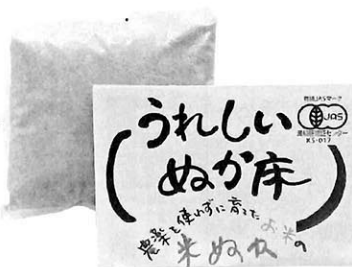 有機JASマーク
JAS
KS-017
うれしい
ぬか床
農薬を使わずに育てたお米の
米ぬか